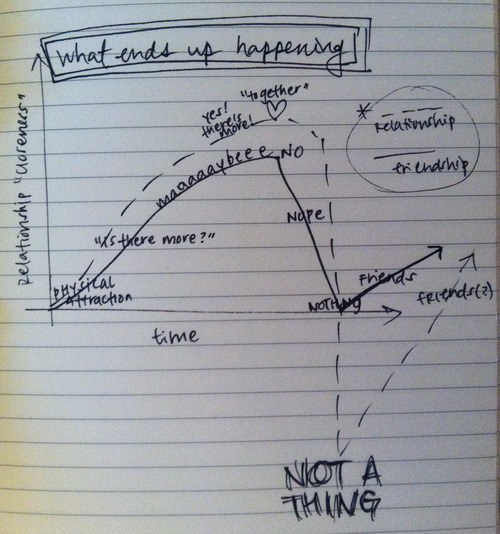 what ends up happening
Relationship "closeness"
"together"
yes!
there's
more!
maaaaaybeee NO
*
Relationship
friendship
Nope
"is there more?"
physical
attraction
NOTHING
Friends
friends(?)
time
NOT A
THING